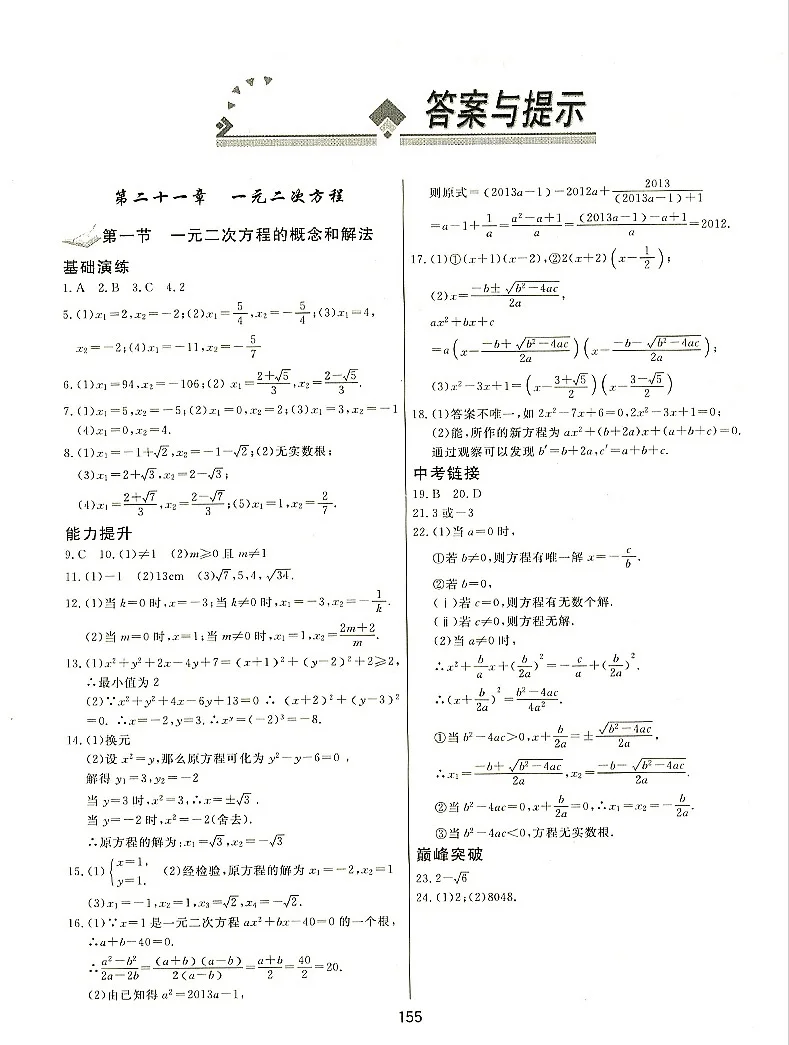 答案与提示
第二十一章 一元二次方程
第一节 一元二次方程的概念和解法
基础演练
1.A 2.B 3.C 4.2
5.(1)x₁=2,x₂=-2;(2)x₁=5/4,x₂=-5/4;(3)x₁=4,
x₂=-2;(4)x₁=-11,x₂=-5/7
6.(1)x₁=94,x₂=-106;(2) x₁=(2+√5)/3,x₂=(2-√5)/3.
7.(1)x₁=5,x₂=-5;(2)x₁=0,x₂=2;(3)x₁=3,x₂=-1
(4)x₁=0,x₂=4.
8.(1)x₁=-1+√2,x₂=-1-√2;(2)无实数根;
(3)x₁=2+√3,x₂=2-√3;
(4)x₁=(2+√7)/3,x₂=(2-√7)/3;(5)x₁=1,x₂=2/7.
能力提升
9.C 10.(1)≠1 (2)m≥0且m≠1
11.(1)-1 (2)13cm (3)√7,5,4,√34.
12.(1)当k=0时,x=-3;当k≠0时,x₁=-3,x₂=-1/k.
(2)当m=0时,x=1;当m≠0时,x₁=1,x₂=(2m+2)/m.
13.(1)x²+y²+2x-4y+7=(x+1)²+(y-2)²+2≥2,
∴最小值为2
(2)∵x²+y²+4x-6y+13=0 ∴ (x+2)²+(y-3)²
=0. ∴x=-2,y=3.∴xʸ=(-2)³=-8.
14.(1)换元
(2)设x²=y,那么原方程可化为y²-y-6=0 ,
解得y₁=3,y₂=-2
当y=3时,x²=3,∴x=±√3 .
当y=-2时,x²=-2(舍去).
∴原方程的解为:x₁=√3,x₂=-√3
15.(1){x=1, y=1. (2)经检验,原方程的解为x₁=-2,x₂=1
(3)x₁=-1,x₂=1,x₃=√2,x₄=-√2.
16.(1)∵x=1是一元二次方程ax²+bx-40=0的一个根,
∴a+b-40=0.
∴(a²-b²)/(2a-2b)=(a+b)(a-b)/2(a-b)=(a+b)/2=40/2=20.
(2)由已知得a²=2013a-1,
则原式=(2013a-1)-2012a+2013/((2013a-1)+1)
=a-1+1/a=(a²-a+1)/a=((2013a-1)-a+1)/a=2012.
17.(1)①(x+1)(x-2),②2(x+2)(x-1/2);
(2)x=(-b±√(b²-4ac))/2a,
ax²+bx+c
=a(x-(-b+√(b²-4ac))/2a)(x-(-b-√(b²-4ac))/2a);
(3)x²-3x+1=(x-(3+√5)/2)(x-(3-√5)/2)
18.(1)答案不唯一,如2x²-7x+6=0,2x²-3x+1=0;
(2)能,所作的新方程为ax²+(b+2a)x+(a+b+c)=0.
通过观察可以发现b′=b+2a,c′=a+b+c.
中考链接
19.B 20.D
21.3或-3
22.(1)当a=0时,
①若b≠0,则方程有唯一解x=-c/b.
②若b=0,
(ⅰ)若c=0,则方程有无数个解.
(ⅱ)若c≠0,则方程无解.
(2)当a≠0时,
∴x²+b/a x+(b/2a)²=-c/a+(b/2a)².
∴(x+b/2a)²=(b²-4ac)/4a².
①当b²-4ac>0,x+b/2a=±√(b²-4ac)/2a,
∴x₁=(-b+√(b²-4ac))/2a,x₂=(-b-√(b²-4ac))/2a.
②当b²-4ac=0,x+b/2a=0,∴x₁=x₂=-b/2a.
③当b²-4ac<0,方程无实数根.
巅峰突破
23.2-√6
24.(1)2;(2)8048.
155